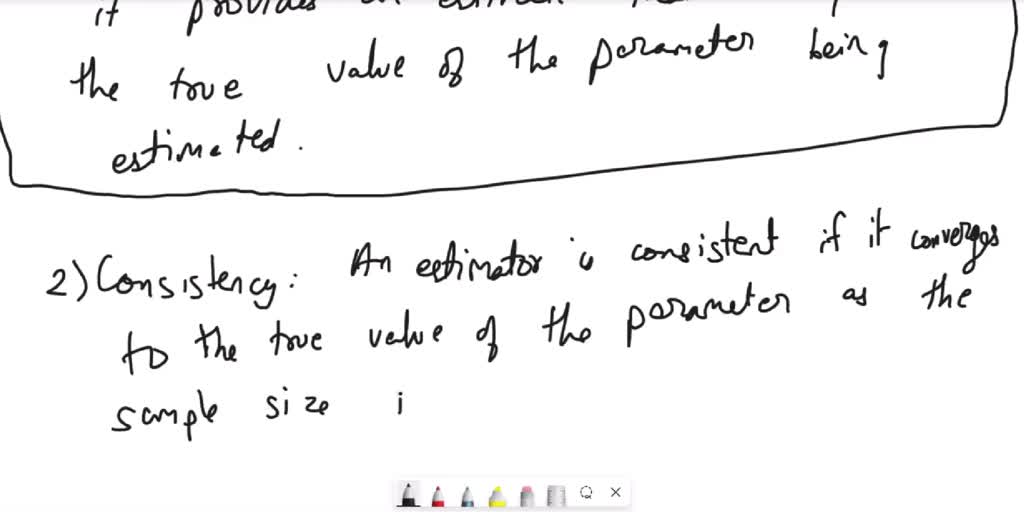 it provides an
the true value of the parameter being
estimated.
2) Consistency: An estimator is consistent if it converges
to the true value of the parameter as the
sample size i